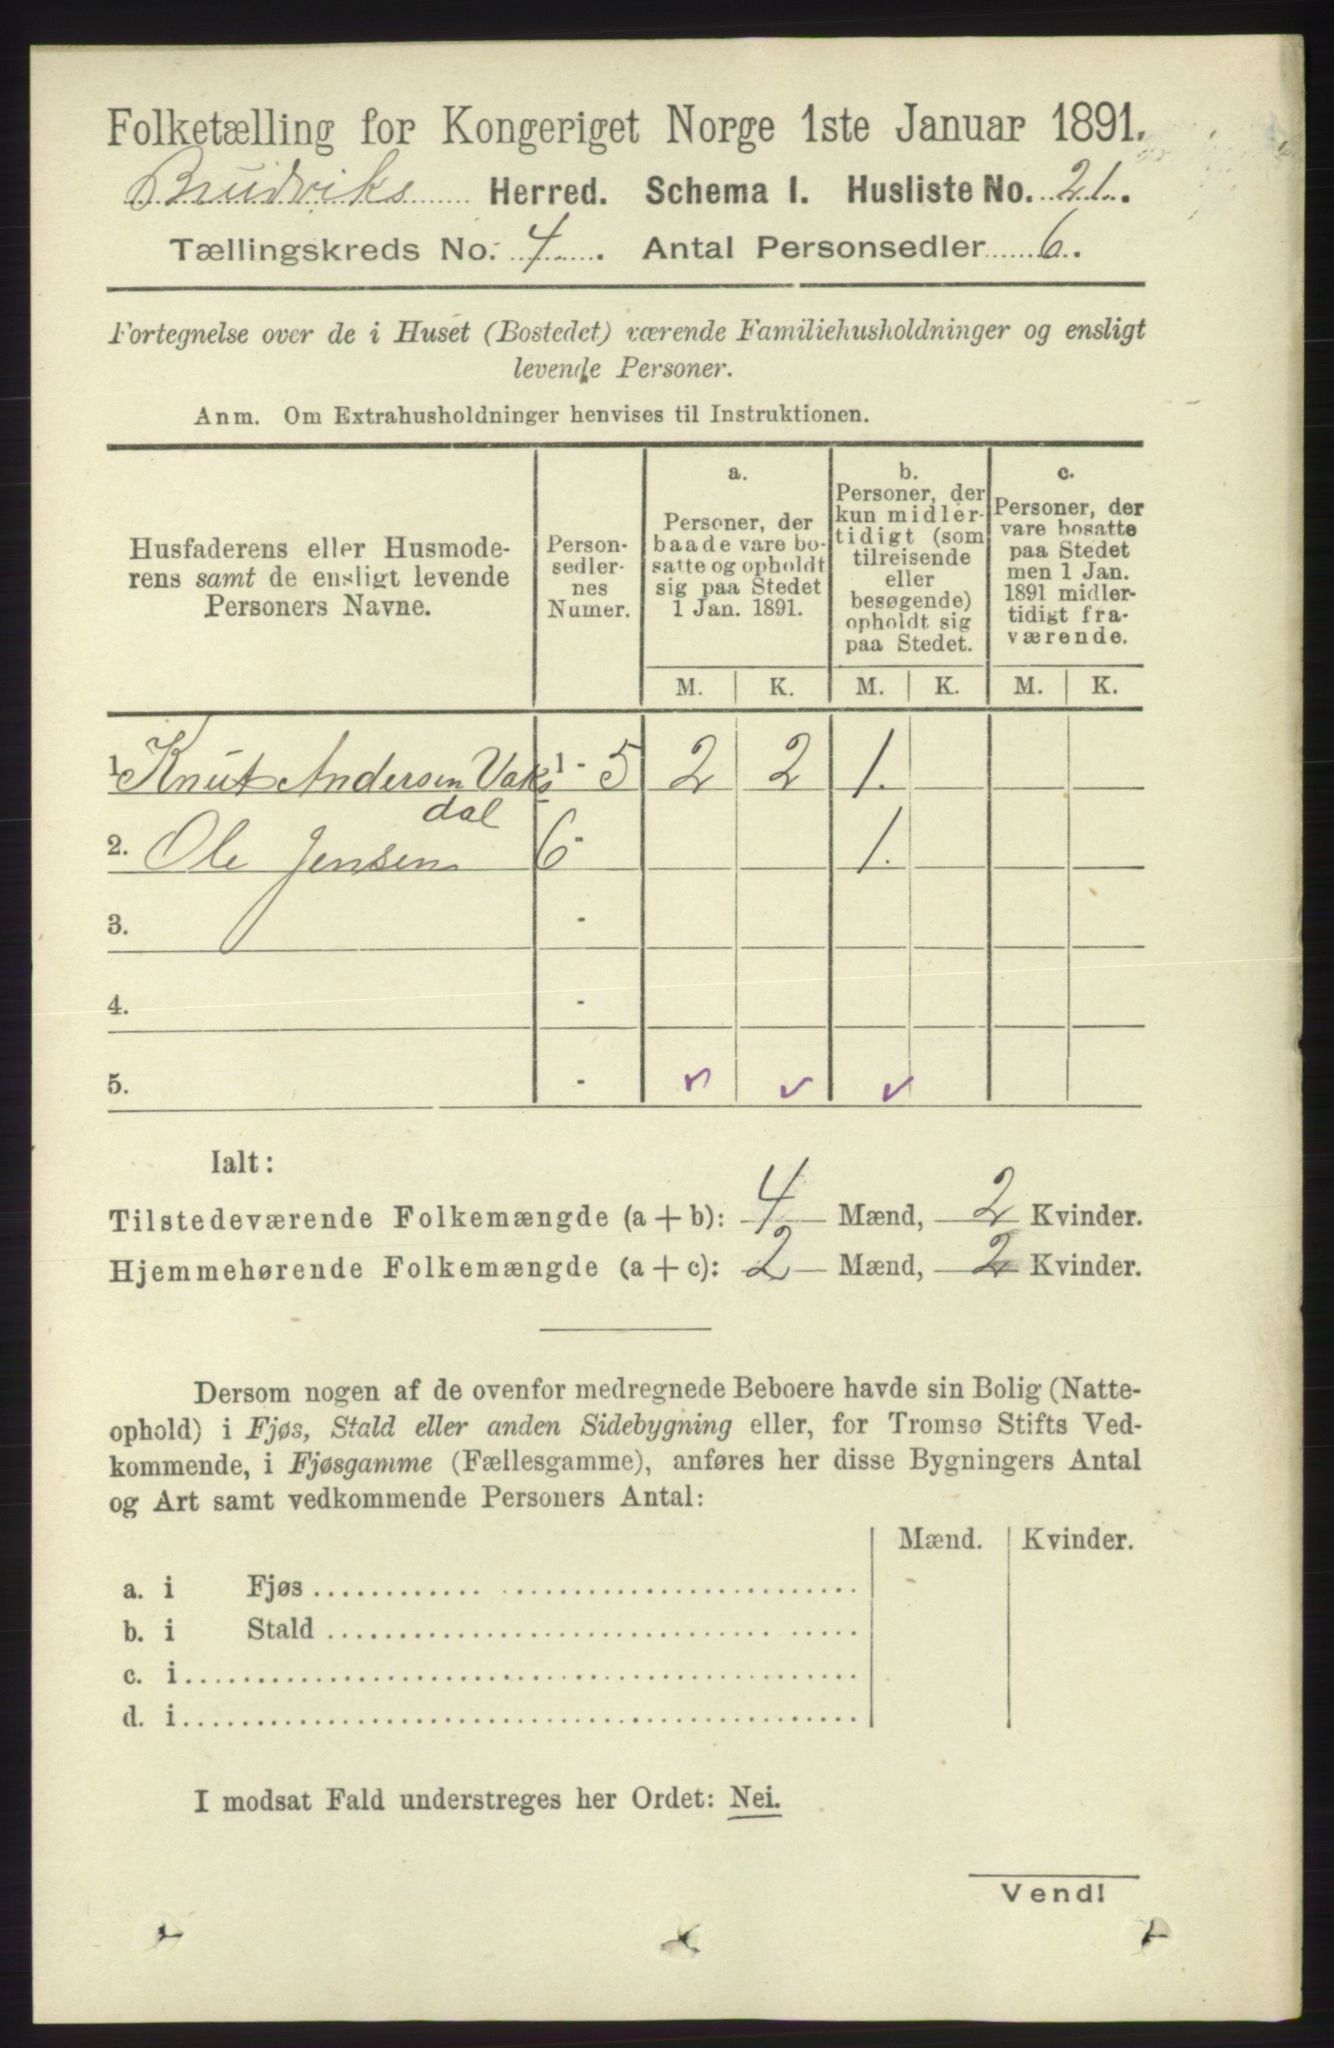 Folketælling for Kongeriget Norge 1ste Januar 1891.
Brudviks Herred. Schema I. Husliste No. 21.
Tællingskreds No. 4. Antal Personsedler 6.
Fortegnelse over de i Huset (Bostedet) værende Familiehusholdninger og ensligt
levende Personer.
Anm. Om Extrahusholdninger henvises til Instruktionen.
Husfaderens eller Husmode-
rens samt de ensligt levende
Personers Navne.
Person-
sedler-
nes
Numer.
a.
Personer, der
baade vare bo-
satte og opholdt
sig paa Stedet
1 Jan. 1891.
b.
Personer, der
kun midler-
tidigt (som
tilreisende
eller
besøgende)
opholdt sig
paa Stedet.
c.
Personer, der
vare bosatte
paa Stedet
men 1 Jan.
1891 midler-
tidigt fra-
værende.
M. K. M. K. M. K.
1. Knut Andersen Vaks 1 - 5 2 2 1.
dal
2. Ole Jensen 6 - 1.
3. -
4. -
5. - v v v
Ialt:
Tilstedeværende Folkemængde (a + b): 4 Mænd, 2 Kvinder.
Hjemmehørende Folkemængde (a + c): 2 Mænd, 2 Kvinder.
Dersom nogen af de ovenfor medregnede Beboere havde sin Bolig (Natte-
ophold) i Fjøs, Stald eller anden Sidebygning eller, for Tromsø Stifts Ved-
kommende, i Fjøsgamme (Fællesgamme), anføres her disse Bygningers Antal
og Art samt vedkommende Personers Antal:
Mænd. Kvinder.
a. i Fjøs
b. i Stald
c. i
d. i
I modsat Fald understreges her Ordet: Nei.
Vend!